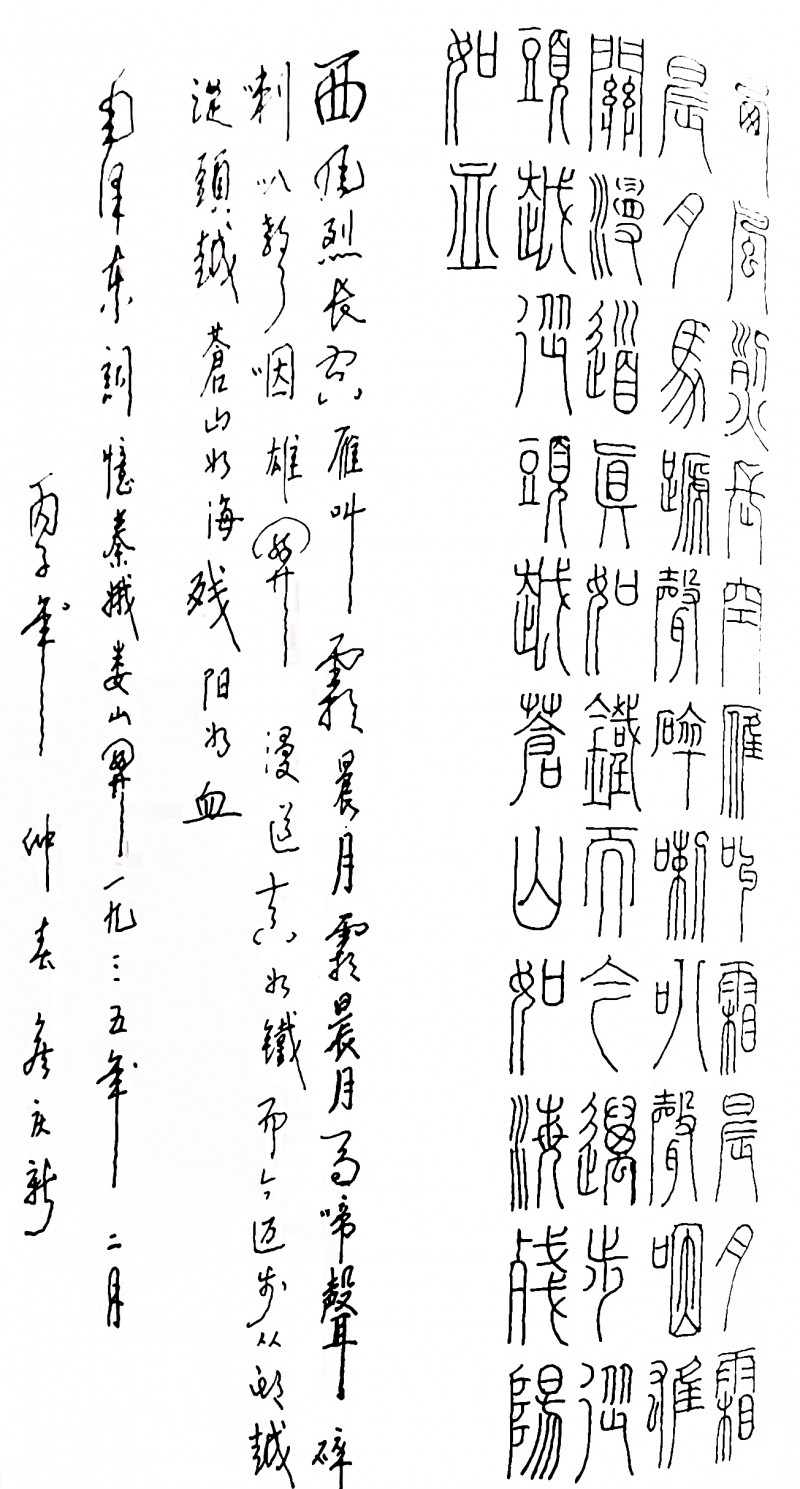 西風烈長空雁叫霜晨月霜
晨月馬蹏聲碎喇叭聲咽雄
關漫道眞如鐵而今邁步從
頭越從頭越蒼山如海殘陽
如血
西風烈长空雁叫霜晨月霜晨月马啼聲碎
喇叭聲咽雄関漫道真如鐵而今迈步从頭越
從頭越蒼山如海残阳如血
毛泽东詞憶秦娥娄山関一九三五年二月
丙子年仲春庆新